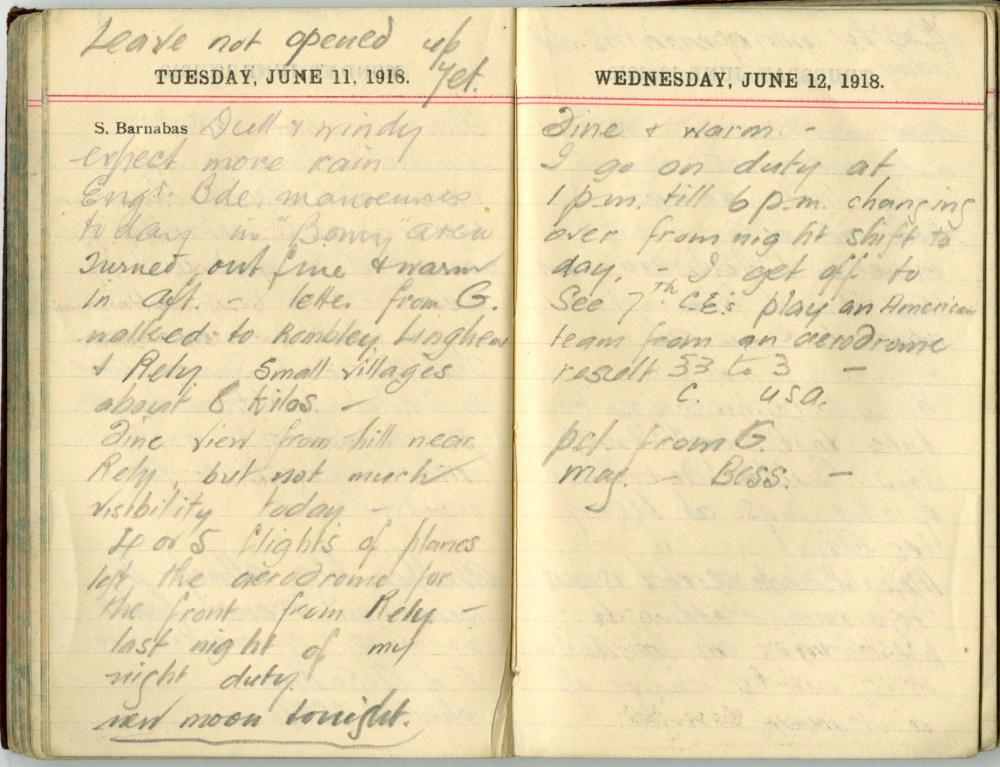 Leave not opened up
yet.
TUESDAY, JUNE 11, 1918.
S. Barnabas Dull & windy
expect more rain
Engr. Bde manoeuvres
today in "Bomy" area
Turned out fine & warm
in aft. - letter from G.
walked to Rombley Linghem
& Rely small villages
about 8 kilos. -
Fine view from hill near
Rely, but not much
visibility today -
4 or 5 flights of planes
left the aerodrome for
the front from Rely -
last night of my
night duty.
new moon tonight.
WEDNESDAY, JUNE 12, 1918.
Fine & warm -
I go on duty at
1 p.m. till 6 p.m. changing
over from night shift to
day. - I get off to
see 7th C.E's play an American
team from an aerodrome
result 33 to 3 -
C. USA.
pcl. from G.
mag. - Bess. -